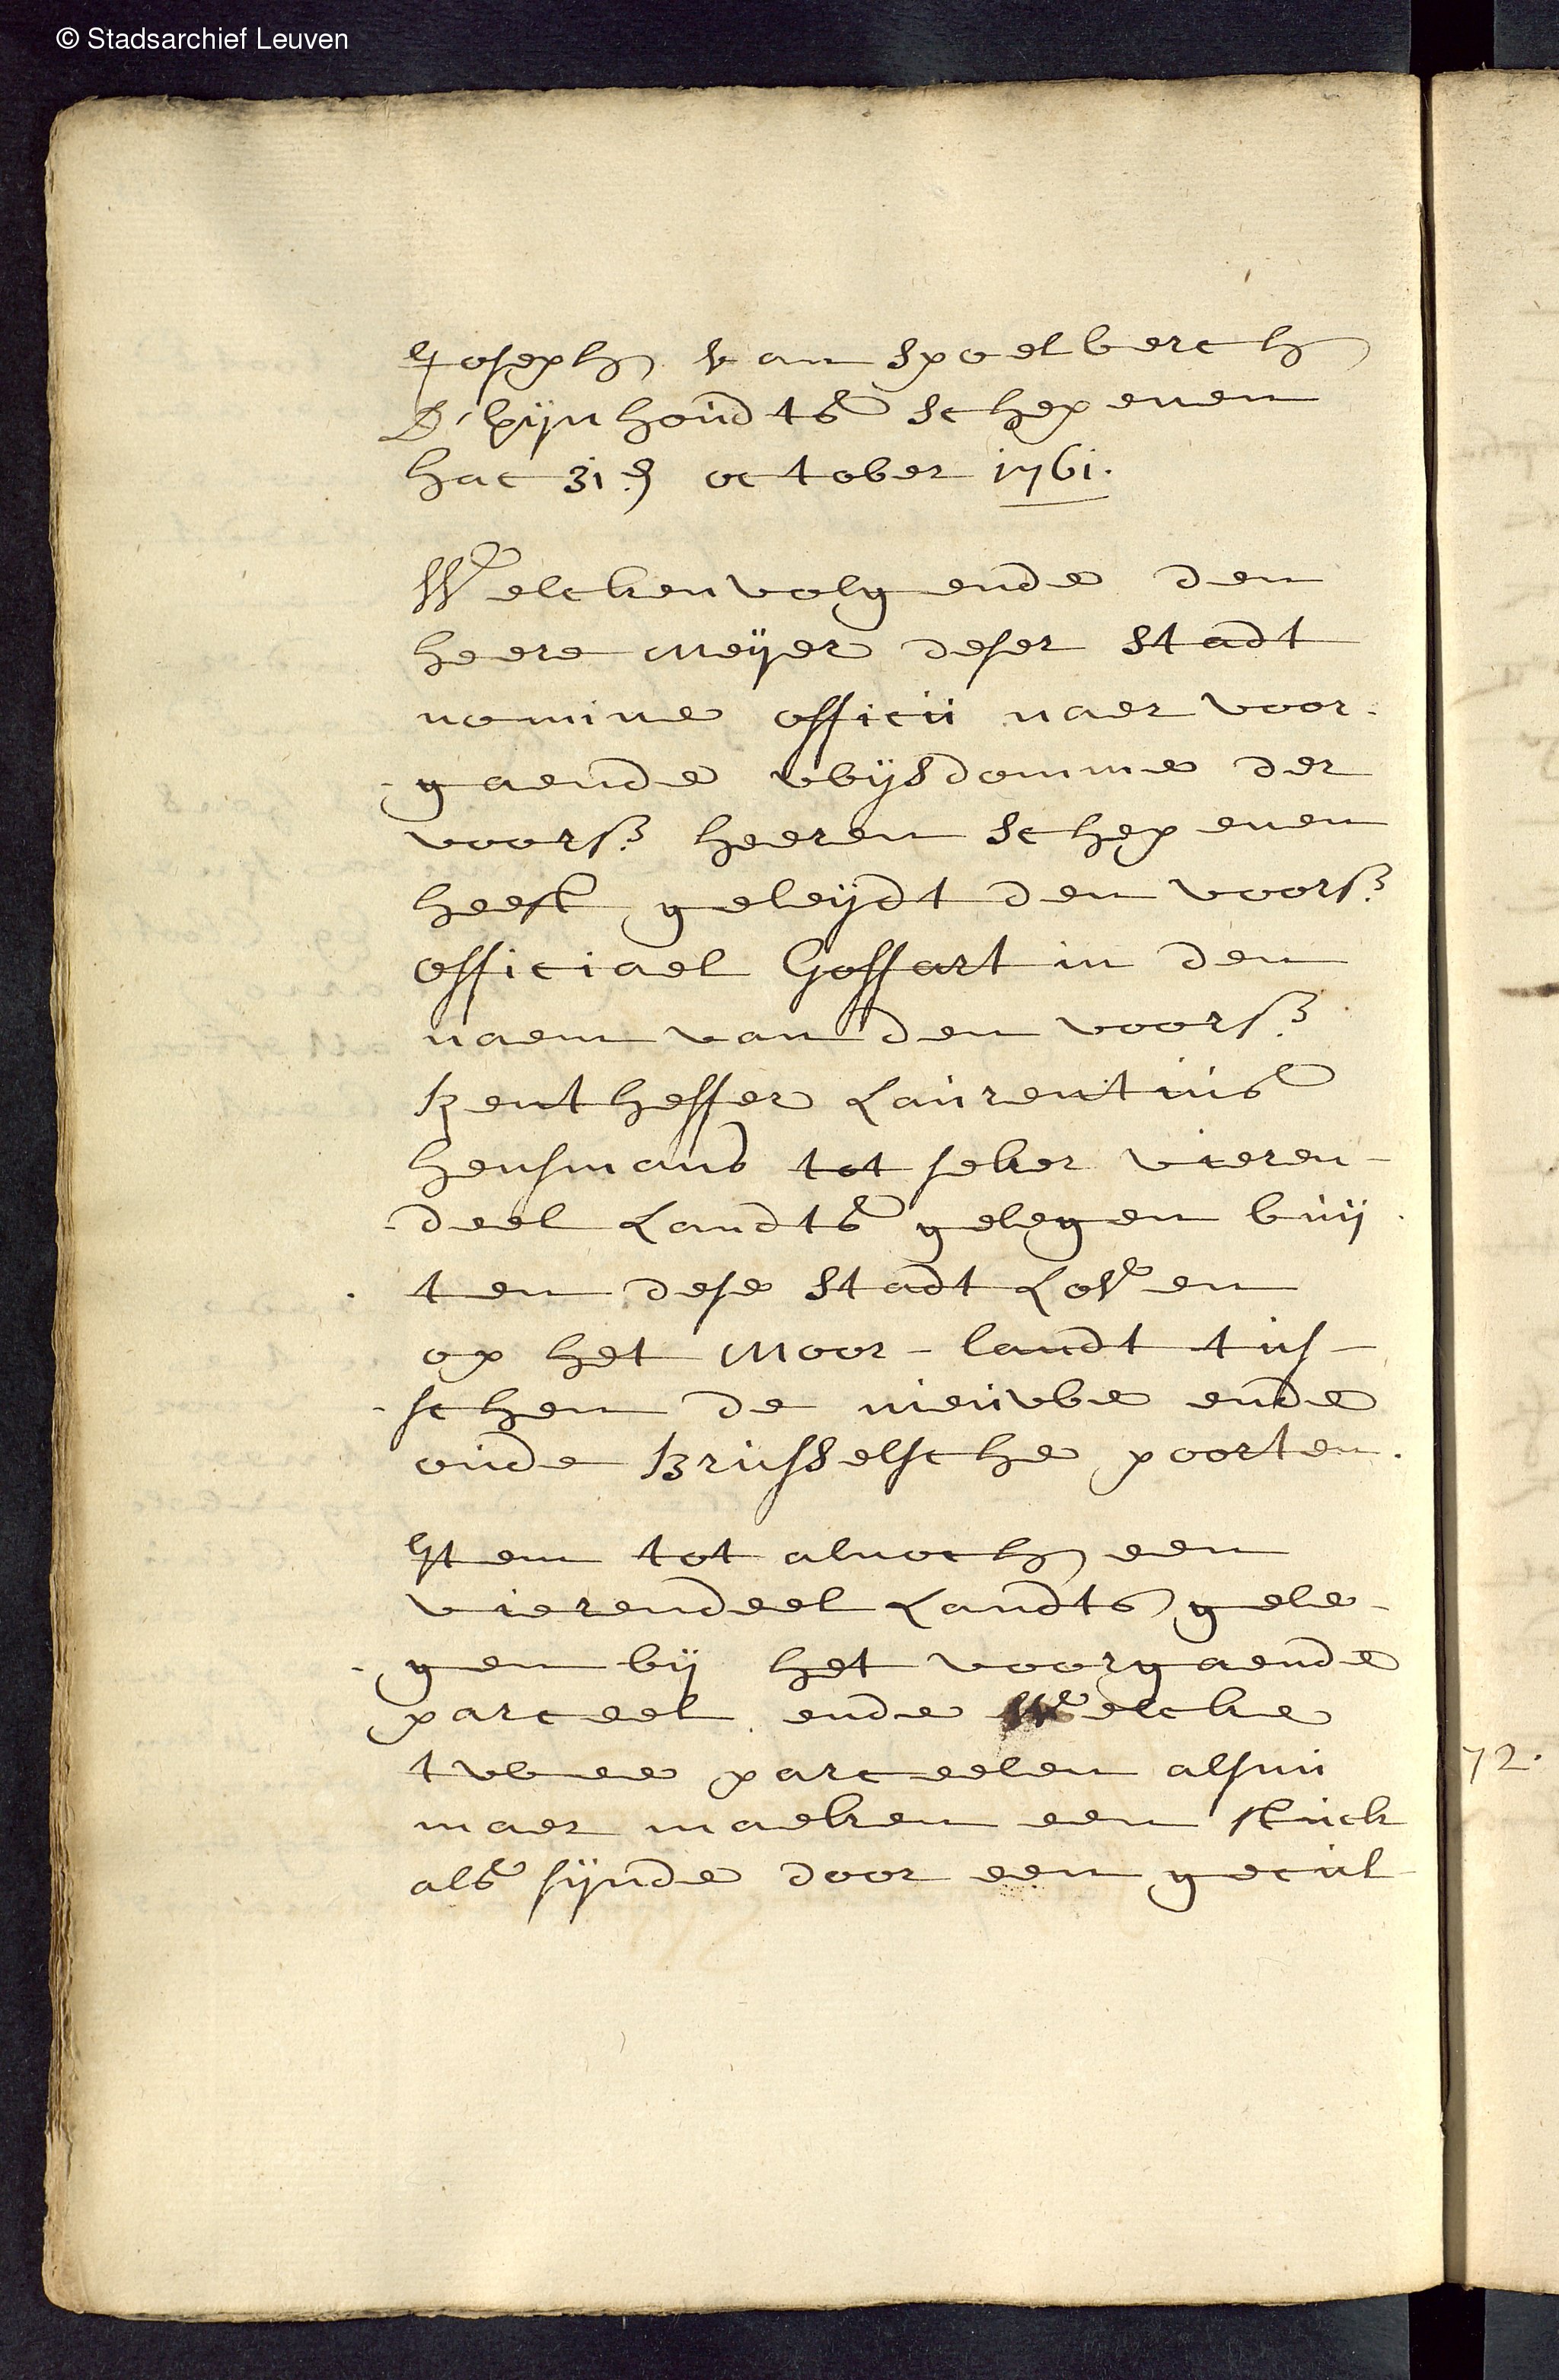 © Stadsarchief Leuven
Joseph van Spoelberch
D'Eynhoudts Schepenen
hac 31.e october 1761.
Welckenvolgende den
heere Meijer deser Stadt
nomine officii naer voor-
-gaende wijsdomme der
voors. heeren Schepenen
heeft geleijdt den voors.
officiael Goffart in den
naem van den voors.
Rentheffer Laurentius
hensmans tot seker vieren-
-deel Landts gelegen buij-
-ten dese Stadt Loven
op het Moor-landt tus-
-schen de nieuwe ende
oude Brusselsche poorten.
Item tot alnoch een
vierendeel Landts gele-
-gen bij het voorgaende
parceel ende Welcke
twee parceelen alsnu
maer maeken een stuck
als sijnde door een gecul
72.